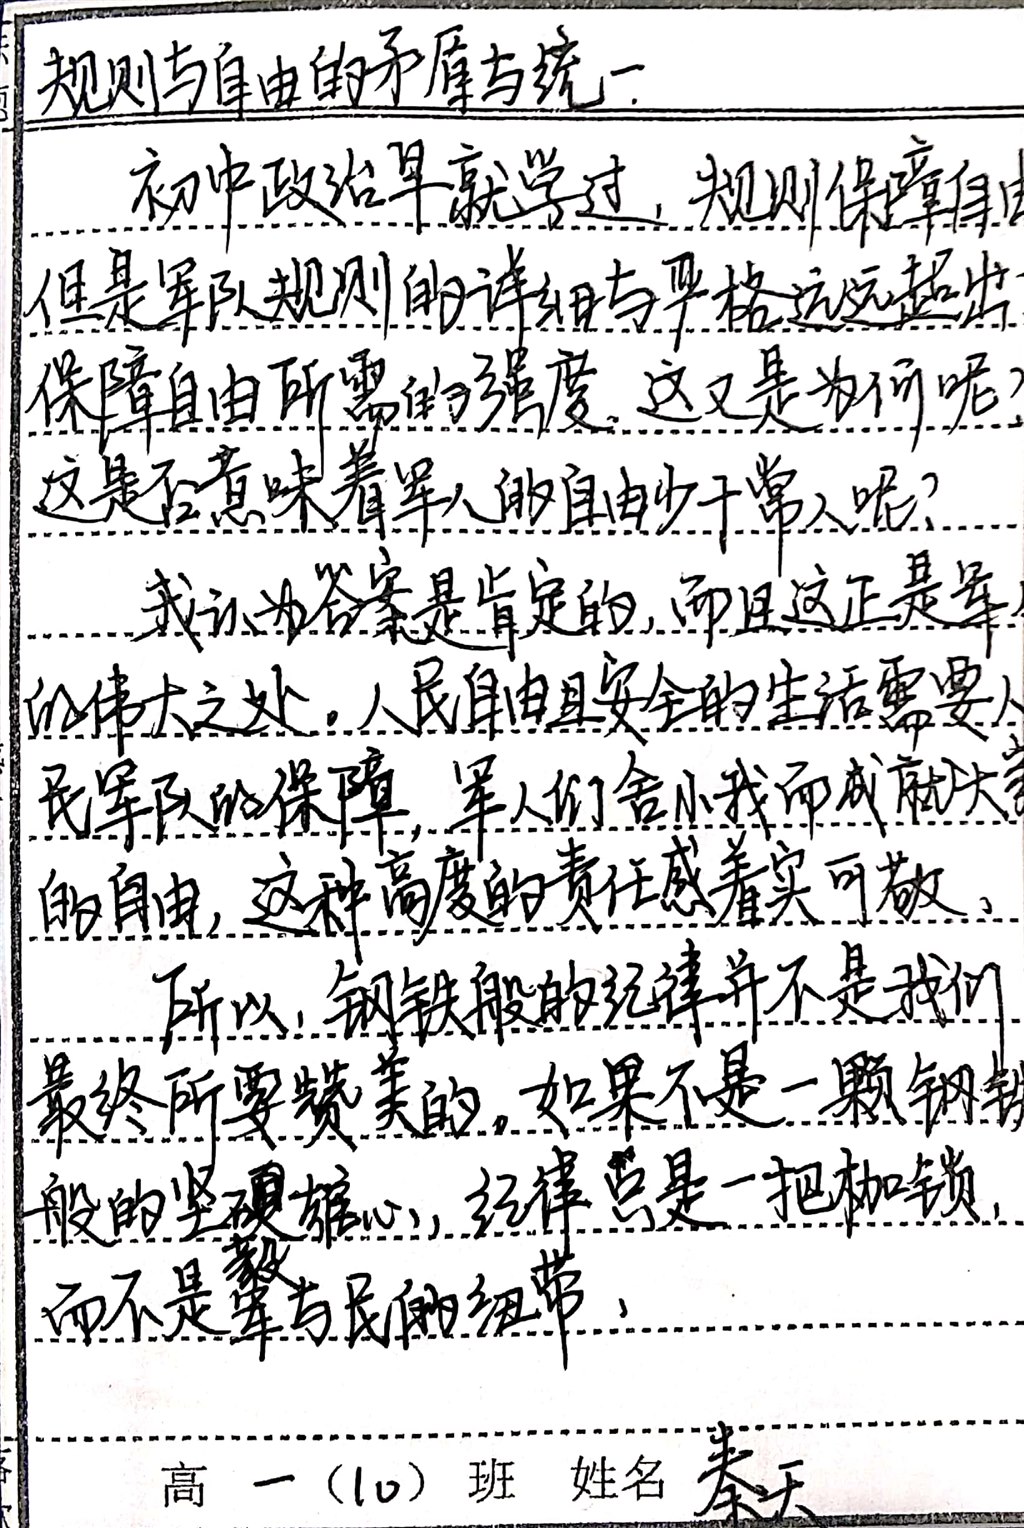 规则与自由的矛盾与统一
初中政治早就学过，规则保障自由
但是军队规则的详细与严格远远超出
保障自由所需的强度。这又是为何呢？
这是否意味着军人的自由少于常人呢？
我认为答案是肯定的，而且这正是军
的伟大之处。人民自由且安全的生活需要人
民军队的保障，军人们舍小我而成就大
的自由，这种高度的责任感着实可敬。
所以，钢铁般的纪律并不是我们
最终所要赞美的。如果不是一颗钢铁
般的坚毅雄心，纪律只是一把枷锁，
而不是军与民的纽带。
高一（10）班 姓名 秦天